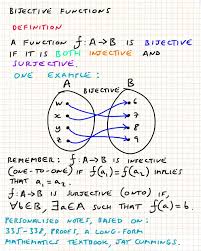 BIJECTIVE FUNCTIONS
DEFINITION
A FUNCTION f: A→B IS BIJECTIVE
IF IT IS BOTH INJECTIVE AND
SURJECTIVE.
ONE EXAMPLE:
A B
BIJECTIVE
w 6
x 7
y 8
z 9
REMEMBER: f: A→B IS INJECTIVE
(ONE-TO-ONE) IF f(a₁) = f(a₂) IMPLIES
THAT a₁ = a₂.
f: A→B IS SURJECTIVE (ONTO) IF,
∀b∈B, ∃a∈A SUCH THAT f(a) = b.
PERSONALISED NOTES, BASED ON:
335-338, PROOFS, A LONG-FORM
MATHEMATICS TEXTBOOK, JAY CUMMINGS.